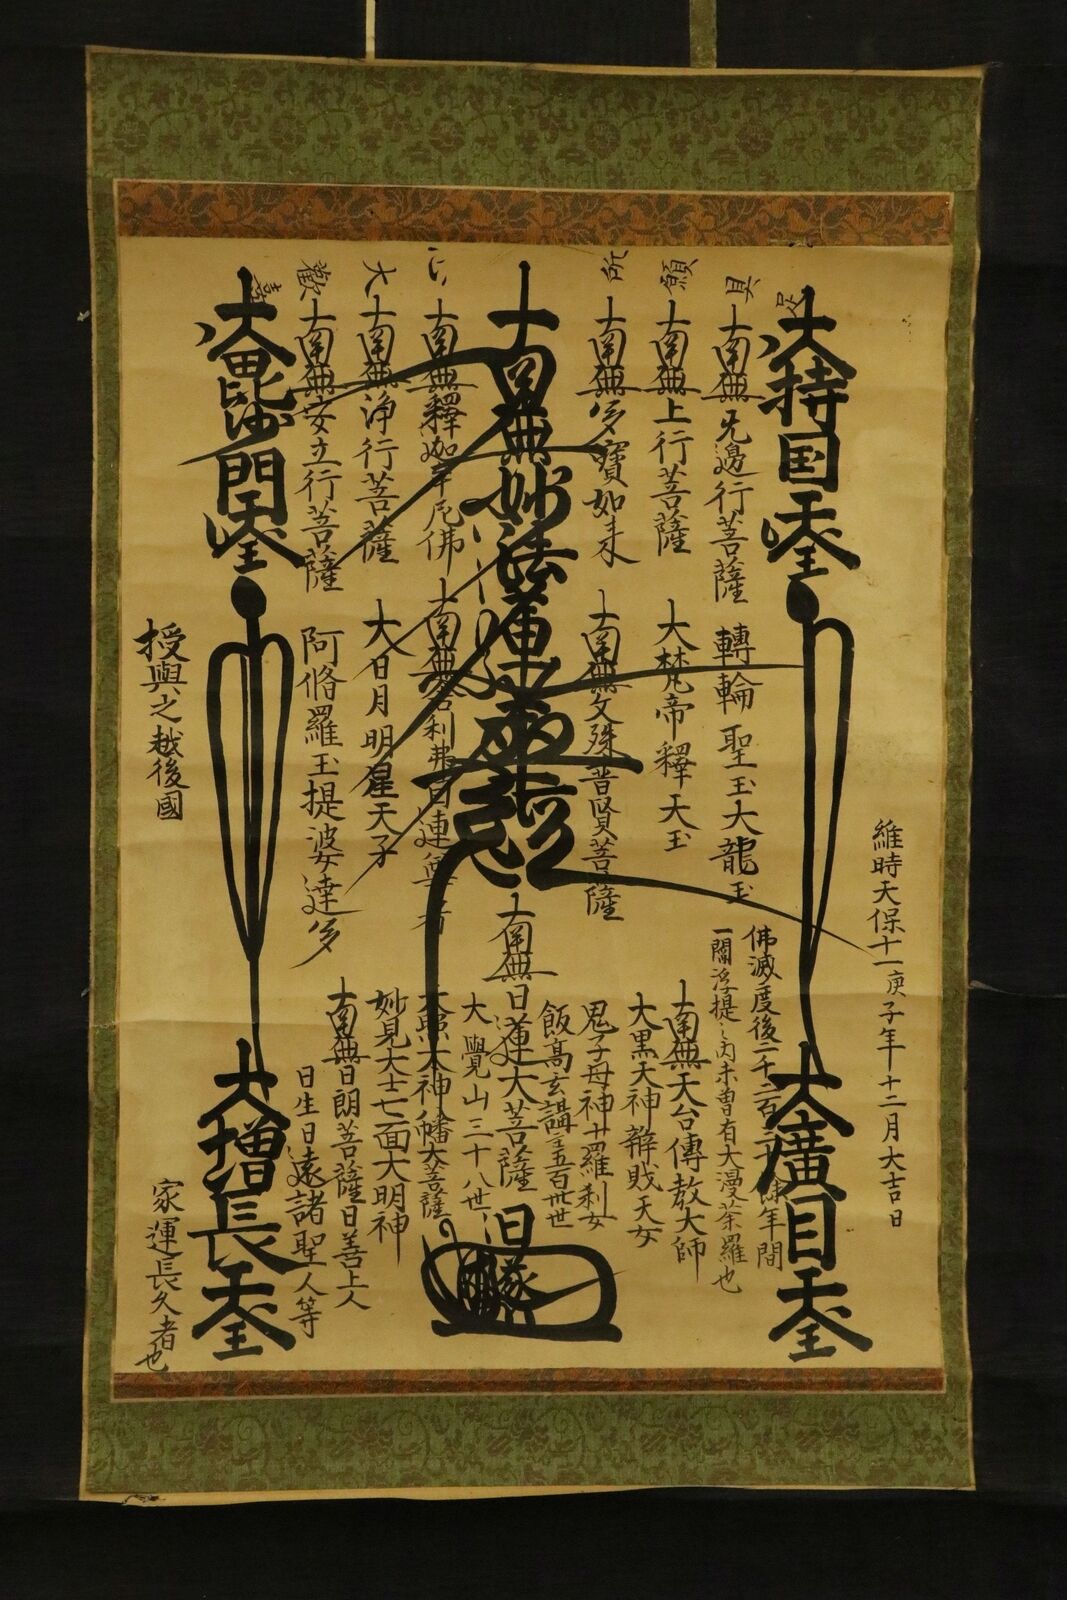 維時天保十一庚子年十二月大吉日
大持国天王
大廣目天王
具足
所願
南無无邊行菩薩
轉輪聖王大龍王
佛滅度後二千二百二十餘年間
一閻浮提之内未曽有大漫荼羅也
南無上行菩薩
大梵帝釋天王
南無天台傳教大師
大黒天神辨財天女
南無多寶如来
南無文殊普賢菩薩
鬼子母神十羅刹女
飯高玄講主五百卅世
南無妙法蓮華経
南無日蓮大菩薩
大覺山三十八世
南無釋迦牟尼佛
南無舎利弗目連尊者
天照太神八幡大菩薩
心大歓喜
南無浄行菩薩
大日月明星天子
妙見大士七面大明神
南無安立行菩薩
阿脩羅王提婆達多
南無日朗菩薩日善上人
日生日遠諸聖人等
大毘沙門天王
大増長天王
授與之越後國
家運長久者也